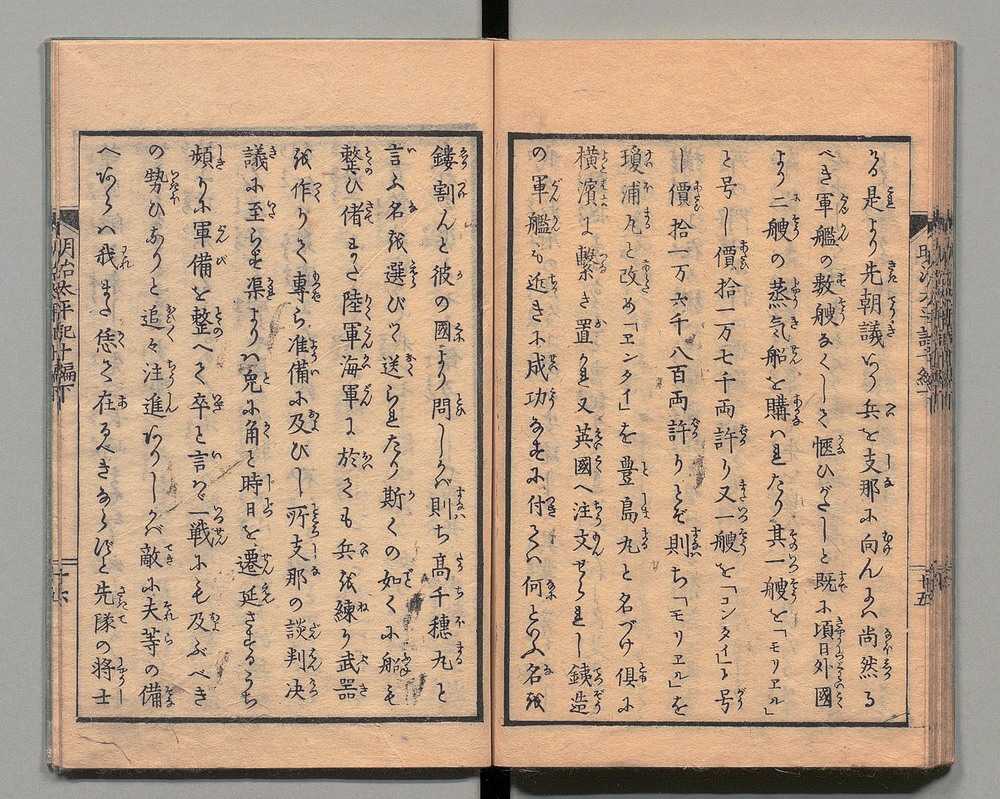 る是より先朝議いよ〳〵兵を支那に向んには尚然る
べき軍艦の数艘なくしては愜ひがたしと既に頃日外國
より二艘の蒸気船を購はれたり其一艘を「モリエル」
と号し價拾一万七千両許り又一艘を「コンタイ」と号
し價拾一万六千八百両許りとぞ則ち「モリエル」を
瓊浦丸と改め「エンタイ」を豊島丸と名づけ倶に
横濱に繋き置かれ又英國へ注文せられし銕造
の軍艦も近きに成功なすに付ては何といふ名を
鏤割んと彼の國より問しかば則ち高千穗丸と
言ふ名を選びて送られたり斯くの如くに船も
整ひ偖また陸軍海軍に於ても兵を練り武器
を作りて專ら准備に及びし所支那の談判决
議に至らず渠よりは兎に角と時日を遷延さするうち
頻りに軍備を整へて卒と言はゞ一戦にも及ぶべき
の勢ひなりと追々注進ありしかば敵に夫等の備
へあらば我また恁て在るべきならずと先隊の将士
明治太平記十編下
十五
十六